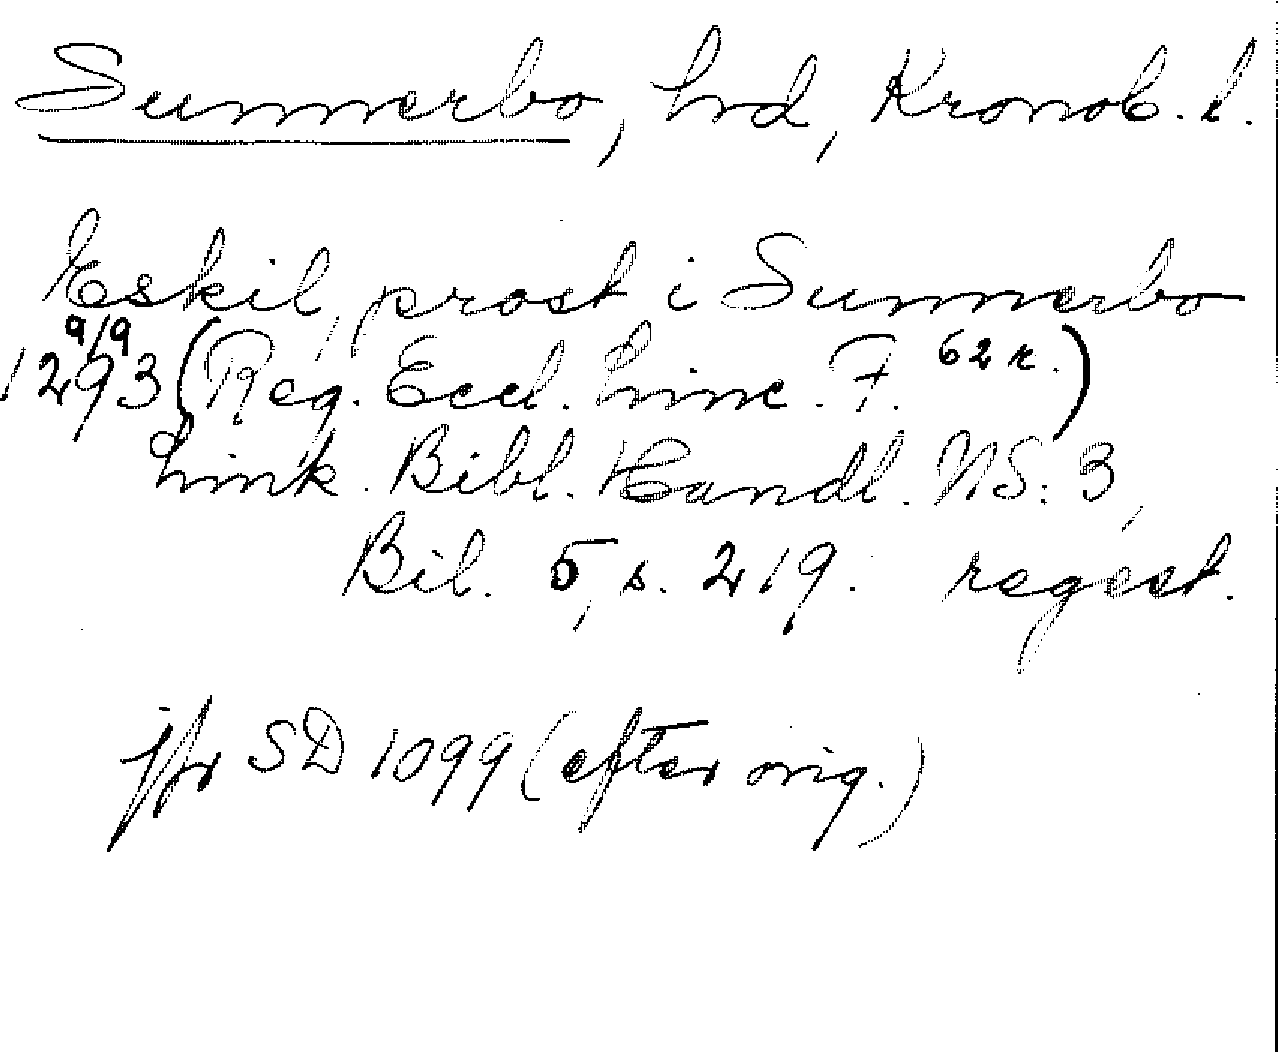 Sunnerbo, hrd, Kronob. l.
Eskil, prost i Sunnerbo
9/9
1293 (Reg. Eccl. Linc. F. 62 r.)
Link. Bibl. Handl. NS: 3,
Bil. 5, s. 219. regest.
jfr SD 1099 (efter orig.)